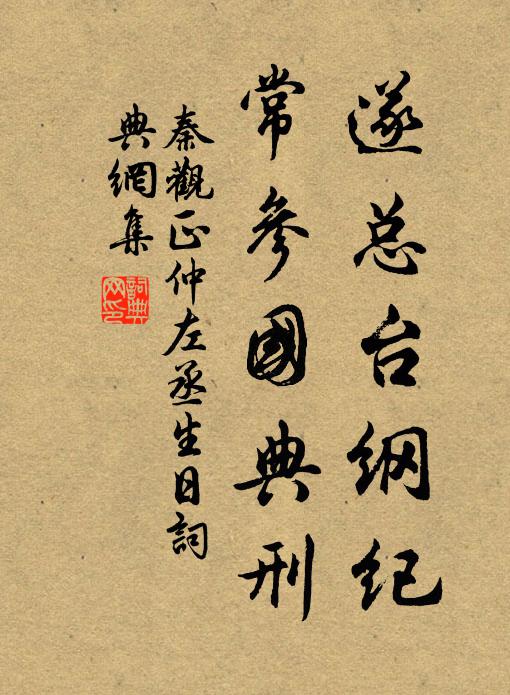 遂总台纲纪
常参國典刑
秦觀正仲左丞生日詞
典網集
詞典
网印